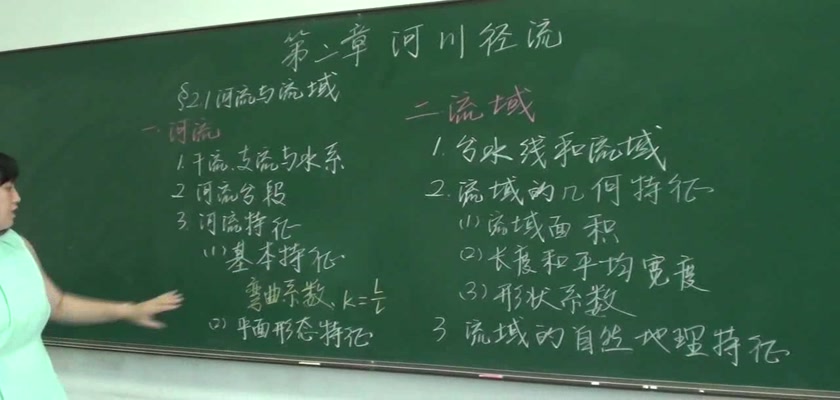 第二章 河川径流
§2.1 河流与流域
一.河流
1.干流、支流与水系
2.河流分段
3.河流特征
(1)基本特征
弯曲系数、K=L/l
(2)平面形态特征
二.流域
1.分水线和流域
2.流域的几何特征
(1)流域面积
(2)长度和平均宽度
(3)形状系数
3 流域的自然地理特征